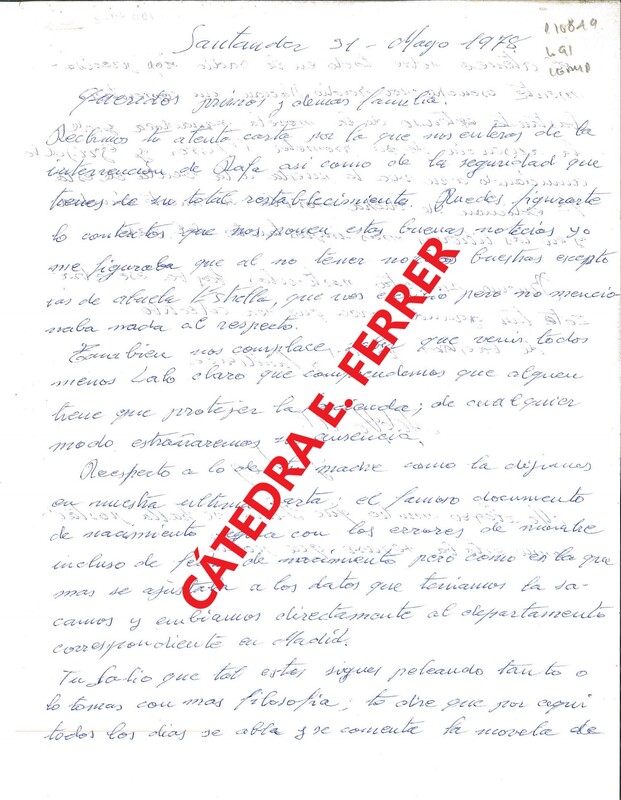 Santander 31 - Mayo 1978
P10849
L91
Queridos primos y demas familia.
Recibimos tu atenta carta por la que nos enteras de la
intervención de Rafa asi como de la seguridad que
tienes de su total restablecimiento. Puedes figurarte
lo contentos que nos ponen estas buenas noticias yo
me figuraba que al no tener buestras excepto
las de abuela Estrella, que vos pero no mencio
naba nada al respecto.
Tambien nos complace que venis todos
menos Lalo claro que comprendemos que alguen
tiene que protejer la ; de cualquier
modo estrañaremos su ausencia.
Respecto a lo de madre como la digimos
en nuestra ultima carta; el famoso documento
de nacimiento con los errores de nombre
incluso de de nacimiento pero como es la que
mas se ajustaba a los datos que teniamos la sa-
camos y embiamos directamente al departamento
correspondiente en Madrid.
Tu que tal estas sigues peleando tanto o
lo tomas con mas filosofia; te dire que por aqui
todos los dias se abla y se comenta la novela de
CÁTEDRA E. FERRER